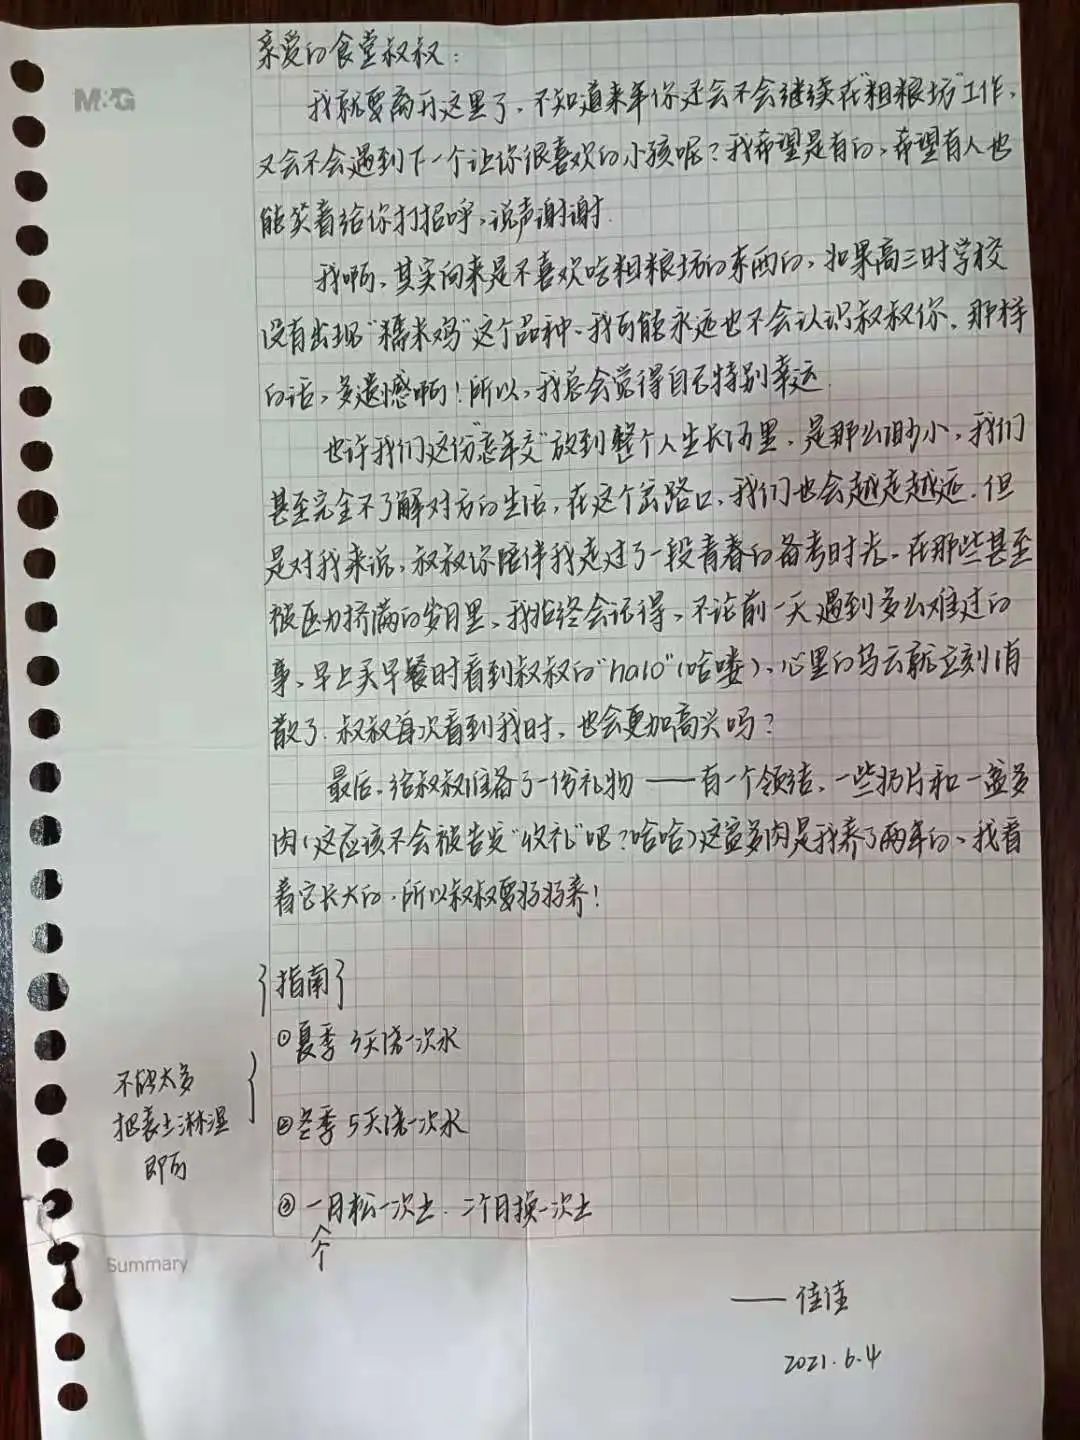 M&G
亲爱的食堂叔叔：
我就要离开这里了，不知道来年你还会不会继续在“粗粮坊”工作，
又会不会遇到下一个让你很喜欢的小孩呢？我希望是有的，希望有人也
能笑着给你打招呼，说声谢谢.
我啊，其实向来是不喜欢吃粗粮坊的东西的，如果高三时学校
没有出现“糯米鸡”这个品种，我可能永远也不会认识叔叔你，那样
的话，多遗憾啊！所以，我总会觉得自己特别幸运.
也许我们这份“忘年交”放到整个人生长河里，是那么渺小，我们
甚至完全不了解对方的生活，在这个岔路口，我们也会越走越远.但
是对我来说，叔叔你陪伴我走过了一段青春的备考时光.在那些甚至
被压力挤满的岁月里，我始终会记得，不论前一天遇到多么难过的
事，早上买早餐时看到叔叔的“halo”（哈喽），心里的乌云就立刻消
散了.叔叔每次看到我时，也会更加高兴吗？
最后，给叔叔准备了一份礼物——有一个领结，一些扔片和一盆多
肉（这应该不会被告发“收礼”吧？哈哈）这盆多肉是我养了两年的，我看
着它长大的.所以叔叔要好好养！
{指南}
①夏季 3天浇一次水
不能太多
把表土淋湿
即可
②冬季 5天浇一次水
③ 一个月松一次土.二个月换一次土
Summary
——佳佳
2021.6.4